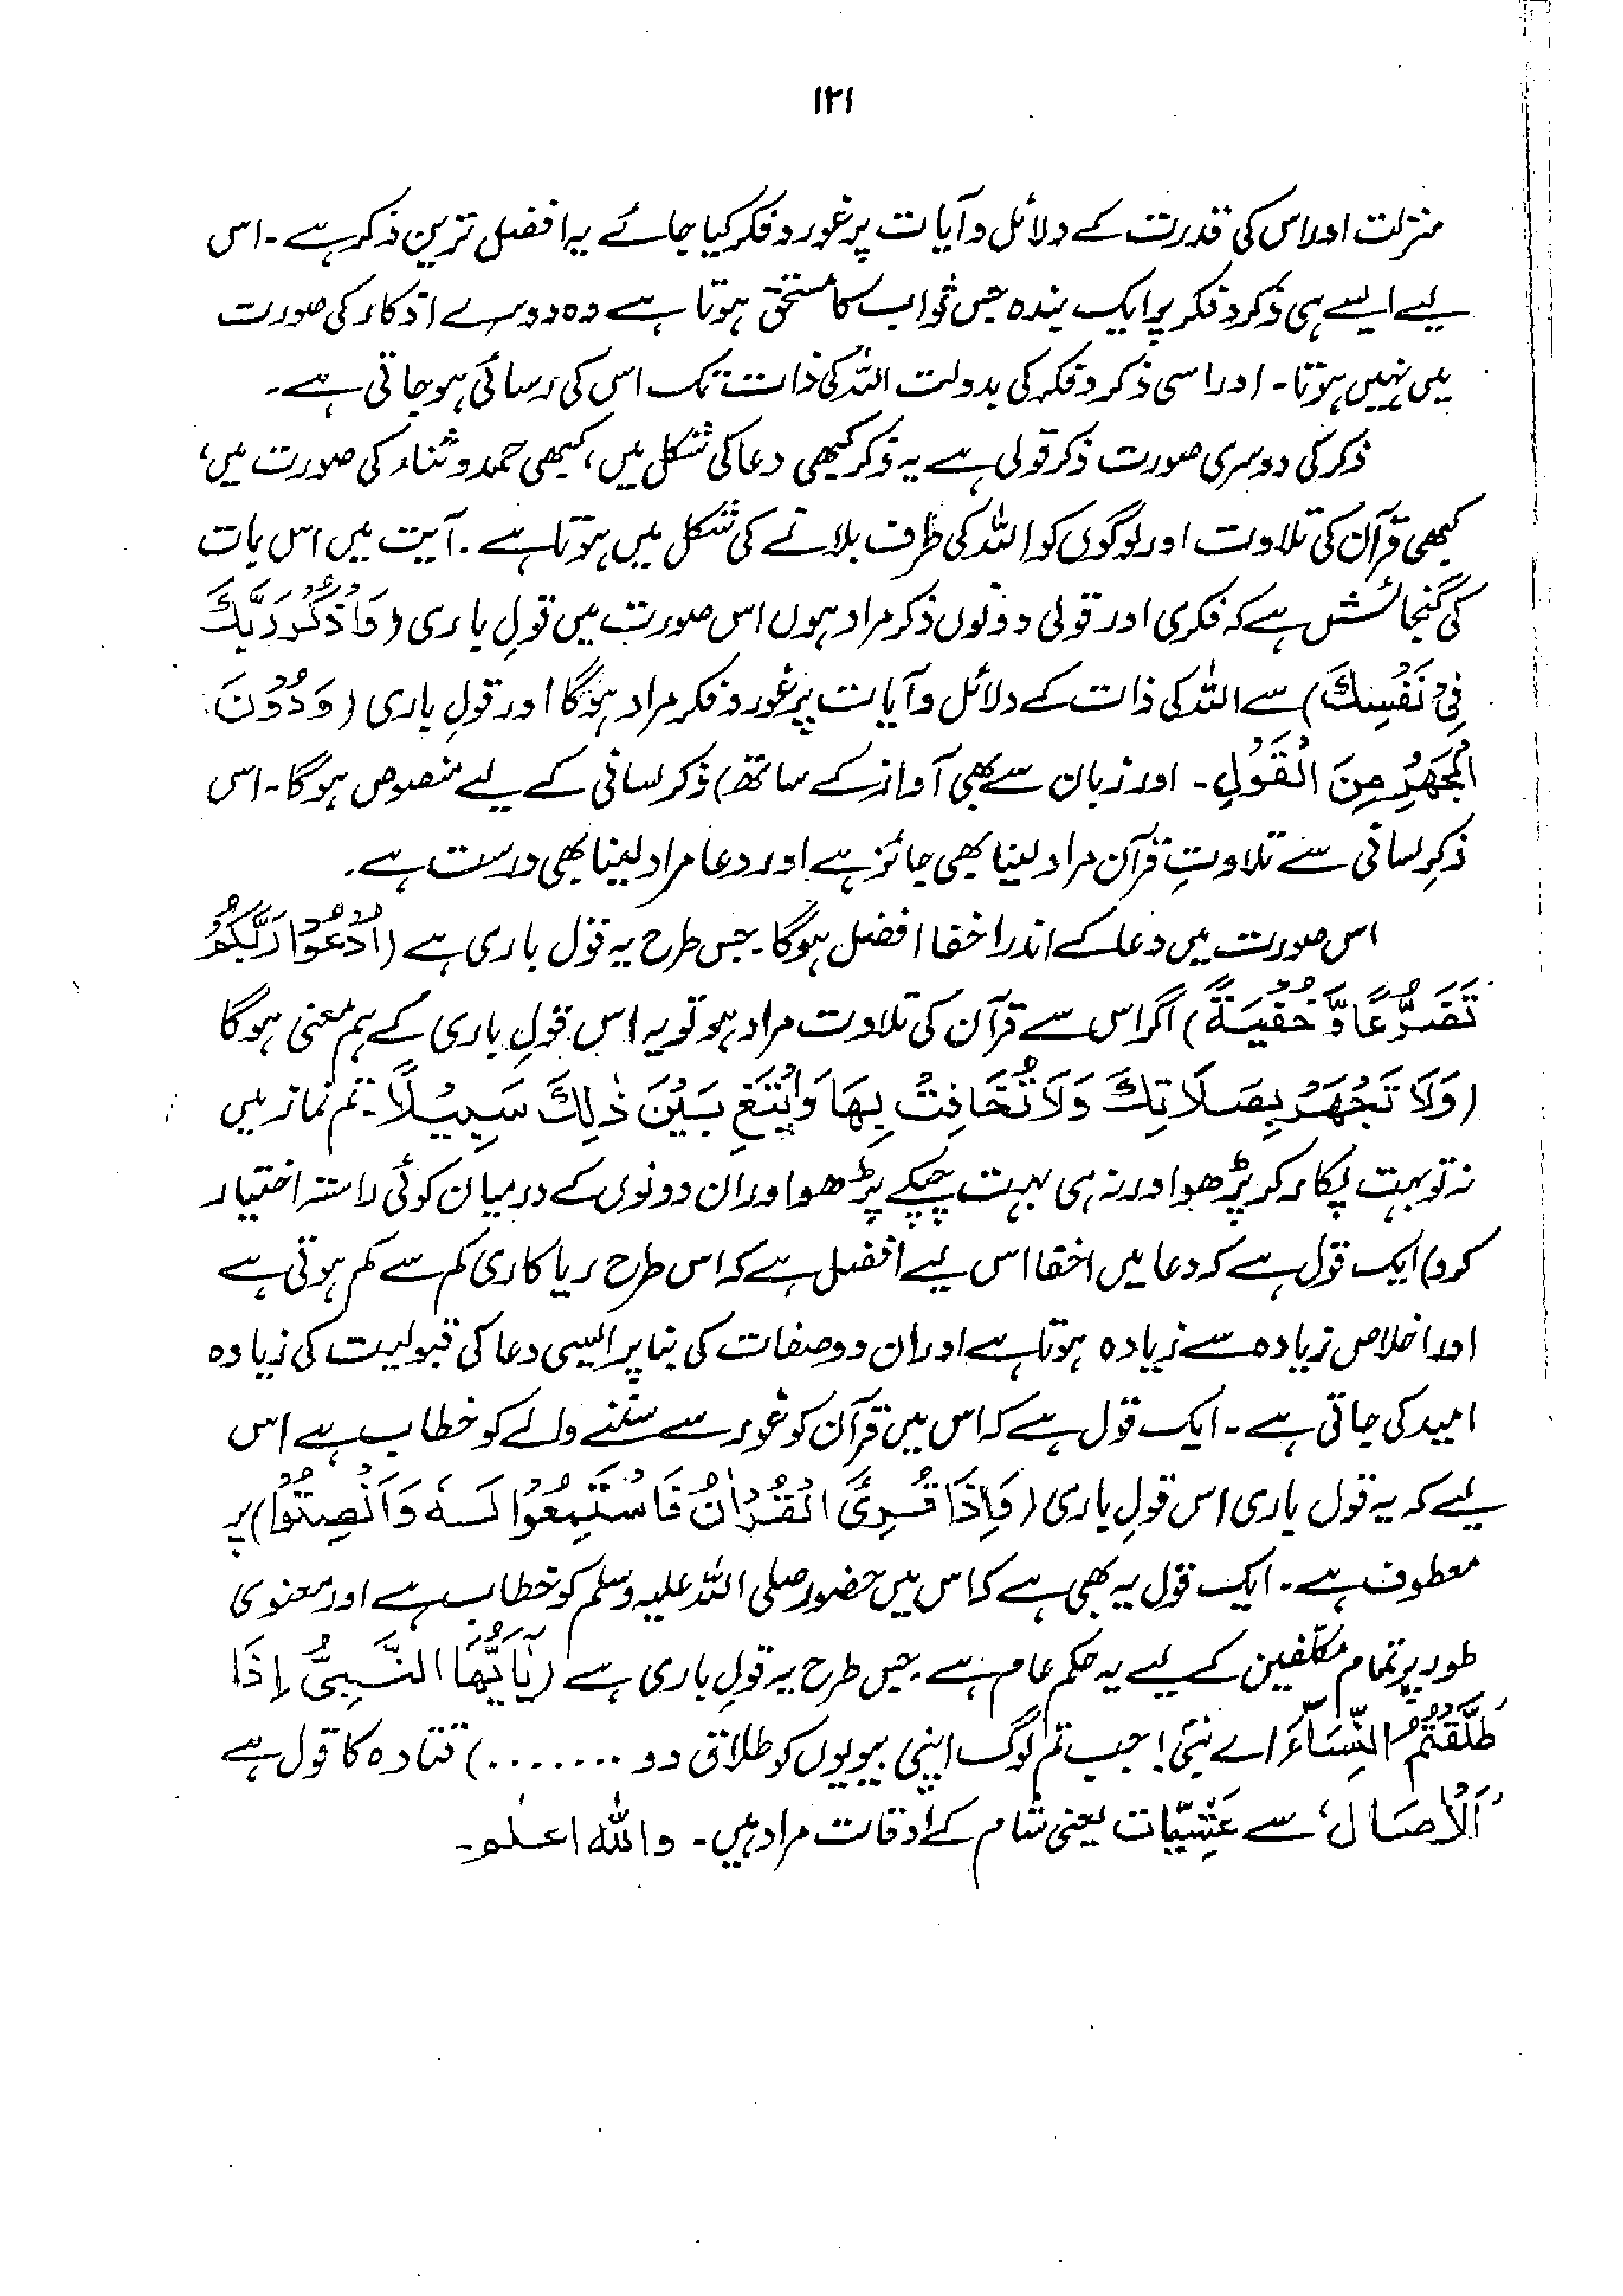 ۱۲۱
منزلت اور اس کی قدرت کے دلائل و آیات پر غور و فکر کیا جائے یہ افضل ترین ذکر ہے۔ اس
لیے ایسے ہی ذکر و فکر پر ایک بندہ جس ثواب کا مستحق ہوتا ہے وہ دوسرے اذکار کی صورت
میں نہیں ہوتا۔ اور اسی ذکر و فکر کی بدولت اللہ کی ذات تک اس کی رسائی ہو جاتی ہے۔
ذکر کی دوسری صورت ذکر قولی ہے یہ ذکر کبھی دعا کی شکل میں، کبھی حمد و ثناء کی صورت میں،
کبھی قرآن کی تلاوت اور لوگوں کو اللہ کی طرف بلانے کی شکل میں ہوتا ہے۔ آیت میں اس بات
کی گنجائش ہے کہ فکری اور قولی دونوں ذکر مراد ہوں اس صورت میں قولِ باری (وَاذْكُرْ رَبَّكَ
فِيْ نَفْسِكَ) سے اللہ کی ذات کے دلائل و آیات پر غور و فکر مراد ہوگا اور قولِ باری (وَدُوْنَ
الْجَهْرِ مِنَ الْقَوْلِ۔ اور زبان سے بھی آواز کے ساتھ) ذکر لسانی کے لیے منصوص ہوگا۔ اس
ذکرِ لسانی سے تلاوتِ قرآن مراد لینا بھی جائز ہے اور دعا مراد لینا بھی درست ہے۔
اس صورت میں دعا کے اندر اخفا افضل ہوگا۔ جس طرح یہ قول باری ہے (اُدْعُوْا رَبَّكُمْ
تَضَرُّعًا وَّخُفْيَةً) اگر اس سے قرآن کی تلاوت مراد ہو تو یہ اس قولِ باری کے ہم معنی ہوگا
(وَلَا تَجْهَرْ بِصَلَاتِكَ وَلَا تُخَافِتْ بِهَا وَابْتَغِ بَيْنَ ذٰلِكَ سَبِيْلًا۔ تم نماز میں
نہ تو بہت پکار کر پڑھو اور نہ ہی بہت چپکے پڑھو اور ان دونوں کے درمیان کوئی راستہ اختیار
کرو) ایک قول ہے کہ دعا میں اخفا اس لیے افضل ہے کہ اس طرح ریا کاری کم سے کم ہوتی ہے
اور اخلاص زیادہ سے زیادہ ہوتا ہے اور ان دو صفات کی بنا پر ایسی دعا کی قبولیت کی زیادہ
امید کی جاتی ہے۔ ایک قول ہے کہ اس میں قرآن کو غور سے سننے والے کو خطاب ہے اس
لیے کہ یہ قول باری اس قولِ باری (فَاِذَا قُرِئَ الْقُرْاٰنُ فَاسْتَمِعُوْا لَهٗ وَاَنْصِتُوْا) پر
معطوف ہے۔ ایک قول یہ بھی ہے کہ اس میں حضور صلی اللہ علیہ وسلم کو خطاب ہے اور معنوی
طور پر تمام مکلّفین کے لیے یہ حکم عام ہے۔ جس طرح یہ قولِ باری ہے (يٰٓاَيُّهَا النَّبِيُّ اِذَا
طَلَّقْتُمُ النِّسَآءَ اے نبیؐ! جب تم لوگ اپنی بیویوں کو طلاق دو .......) قتادہ کا قول ہے
'اَلْاٰصَال' سے عَشِیّات یعنی شام کے اوقات مراد ہیں۔ واللہ اعلم۔